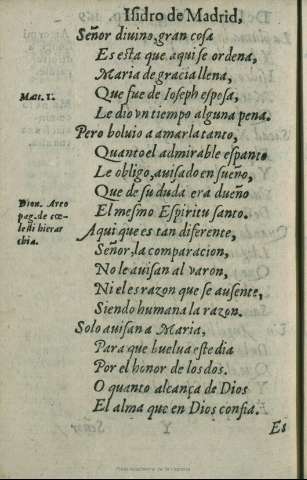 Isidro de Madrid,
Señor diuino, gran cosa
Es esta que aqui se ordena,
Maria de gracia llena,
Mat. 1.
Que fue de Ioseph esposa,
Le dio vn tiempo alguna pena.
Pero boluio a amarla tanto,
Quanto el admirable espanto
Le obligo, auisado en sueño,
Dion. Areo
pag. de cœ-
lesti hierar
chia.
Que de su duda era dueño
El mesmo Espiritu santo.
Aqui que es tan diferente,
Señor, la comparacion,
No le auisan al varon,
Ni el es razon que se ausente,
Siendo humana la razon.
Solo auisan a Maria,
Para que buelua este dia
Por el honor de los dos.
O quanto alcança de Dios
El alma que en Dios confia.
Es